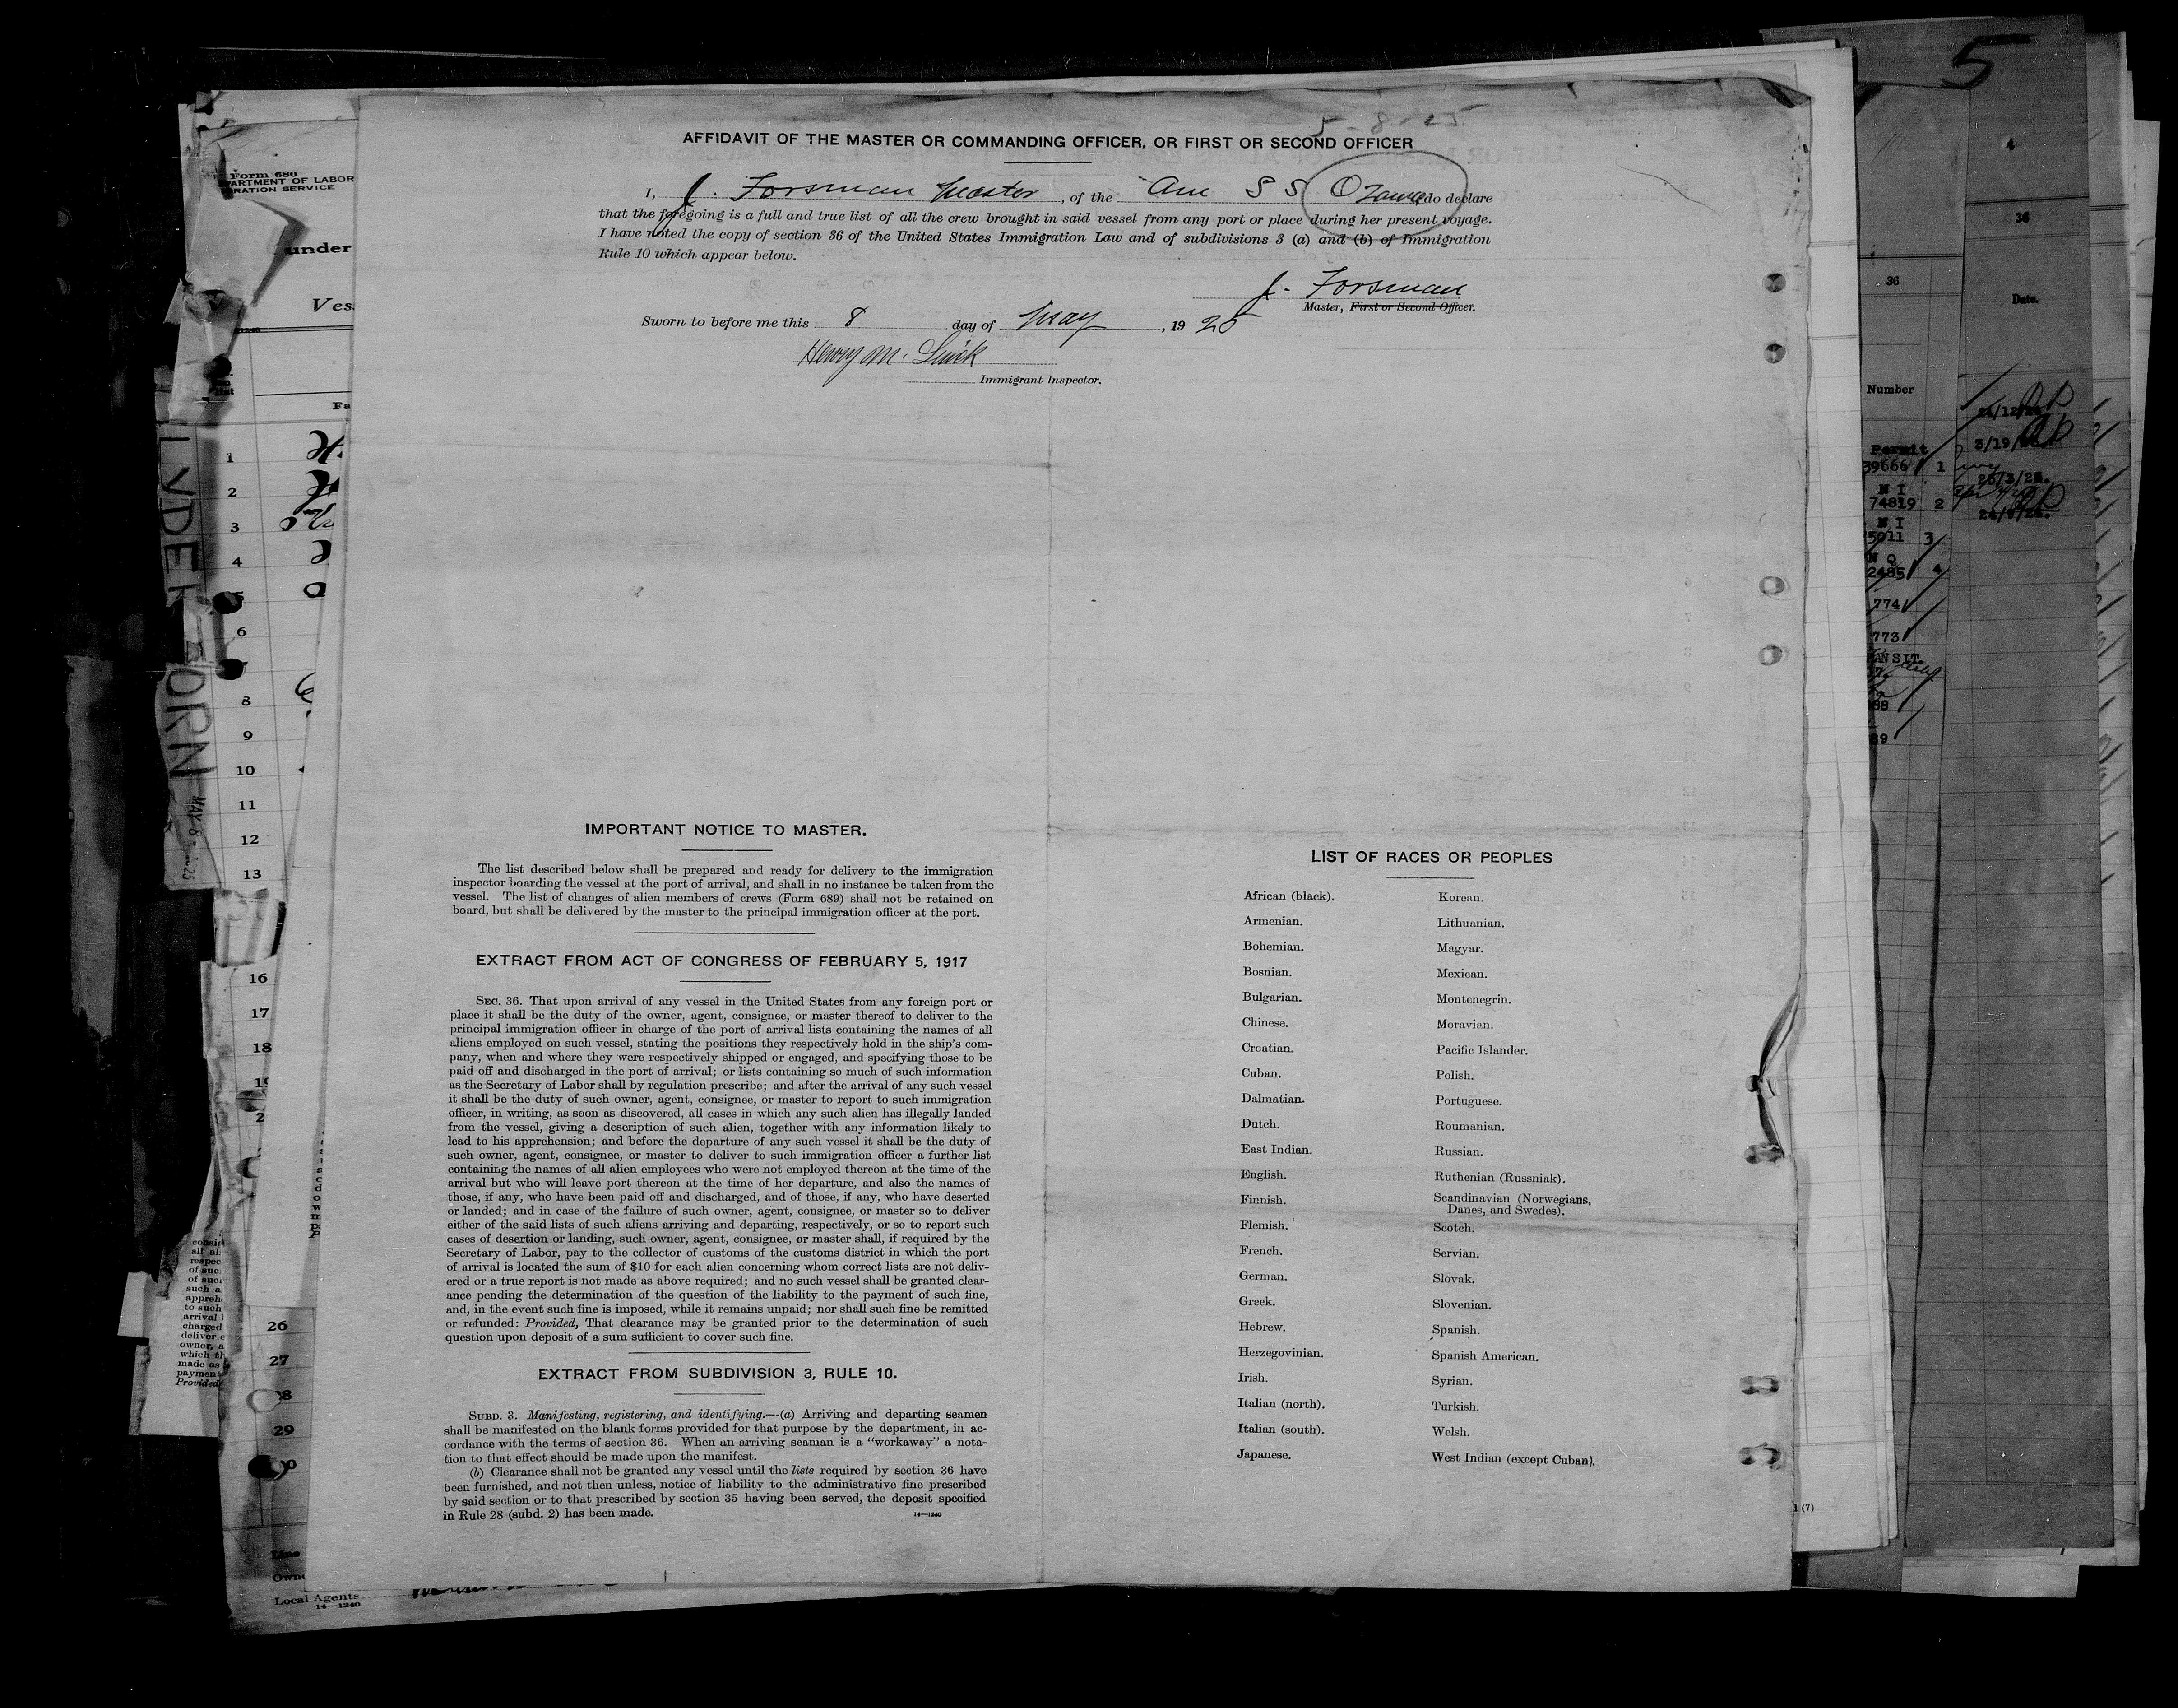 5
5-8-25
AFFIDAVIT OF THE MASTER OR COMMANDING OFFICER, OR FIRST OR SECOND OFFICER
I, J. Forsman Master, of the Am S S do declare
that the foregoing is a full and true list of all the crew brought in said vessel from any port or place during her present voyage.
I have noted the copy of section 36 of the United States Immigration Law and of subdivisions 3 (a) and (b) of Immigration
Rule 10 which appear below.
J. Forsman
Master, First or Second Officer.
Sworn to before me this 8 day of May, 1925
Henry M.
Immigrant Inspector.
IMPORTANT NOTICE TO MASTER.
The list described below shall be prepared and ready for delivery to the immigration
inspector boarding the vessel at the port of arrival, and shall in no instance be taken from the
vessel. The list of changes of alien members of crews (Form 689) shall not be retained on
board, but shall be delivered by the master to the principal immigration officer at the port.
EXTRACT FROM ACT OF CONGRESS OF FEBRUARY 5, 1917
SEC. 36. That upon arrival of any vessel in the United States from any foreign port or
place it shall be the duty of the owner, agent, consignee, or master thereof to deliver to the
principal immigration officer in charge of the port of arrival lists containing the names of all
aliens employed on such vessel, stating the positions they respectively hold in the ship's com-
pany, when and where they were respectively shipped or engaged, and specifying those to be
paid off and discharged in the port of arrival; or lists containing so much of such information
as the Secretary of Labor shall by regulation prescribe; and after the arrival of any such vessel
it shall be the duty of such owner, agent, consignee, or master to report to such immigration
officer, in writing, as soon as discovered, all cases in which any such alien has illegally landed
from the vessel, giving a description of such alien, together with any information likely to
lead to his apprehension; and before the departure of any such vessel it shall be the duty of
such owner, agent, consignee, or master to deliver to such immigration officer a further list
containing the names of all alien employees who were not employed thereon at the time of the
arrival but who will leave port thereon at the time of her departure, and also the names of
those, if any, who have been paid off and discharged, and of those, if any, who have deserted
or landed; and in case of the failure of such owner, agent, consignee, or master so to deliver
either of the said lists of such aliens arriving and departing, respectively, or so to report such
cases of desertion or landing, such owner, agent, consignee, or master shall, if required by the
Secretary of Labor, pay to the collector of customs of the customs district in which the port
of arrival is located the sum of $10 for each alien concerning whom correct lists are not deliv-
ered or a true report is not made as above required; and no such vessel shall be granted clear-
ance pending the determination of the question of the liability to the payment of such fine,
and, in the event such fine is imposed, while it remains unpaid; nor shall such fine be remitted
or refunded: Provided, That clearance may be granted prior to the determination of such
question upon deposit of a sum sufficient to cover such fine.
EXTRACT FROM SUBDIVISION 3, RULE 10.
SUBD. 3. Manifesting, registering, and identifying.—(a) Arriving and departing seamen
shall be manifested on the blank forms provided for that purpose by the department, in ac-
cordance with the terms of section 36. When an arriving seaman is a "workaway" a nota-
tion to that effect should be made upon the manifest.
(b) Clearance shall not be granted any vessel until the lists required by section 36 have
been furnished, and not then unless, notice of liability to the administrative fine prescribed
by said section or to that prescribed by section 35 having been served, the deposit specified
in Rule 28 (subd. 2) has been made.
14—1240
LIST OF RACES OR PEOPLES
African (black).
Armenian.
Bohemian.
Bosnian.
Bulgarian.
Chinese.
Croatian.
Cuban.
Dalmatian.
Dutch.
East Indian.
English.
Finnish.
Flemish.
French.
German.
Greek.
Hebrew.
Herzegovinian.
Irish.
Italian (north).
Italian (south).
Japanese.
Korean.
Lithuanian.
Magyar.
Mexican.
Montenegrin.
Moravian.
Pacific Islander.
Polish.
Portuguese.
Roumanian.
Russian.
Ruthenian (Russniak).
Scandinavian (Norwegians,
Danes, and Swedes).
Scotch.
Servian.
Slovak.
Slovenian.
Spanish.
Spanish American.
Syrian.
Turkish.
Welsh.
West Indian (except Cuban).
Form 680
under
1
2
3
4
6
8
9
10
11
12
13
16
17
18
26
27
29
Local Agents
14—1240
4
36
36
Date.
Number
Permit
39666 1
N I
74819 2
N I
5011 3
N Q
2485 4
774
773